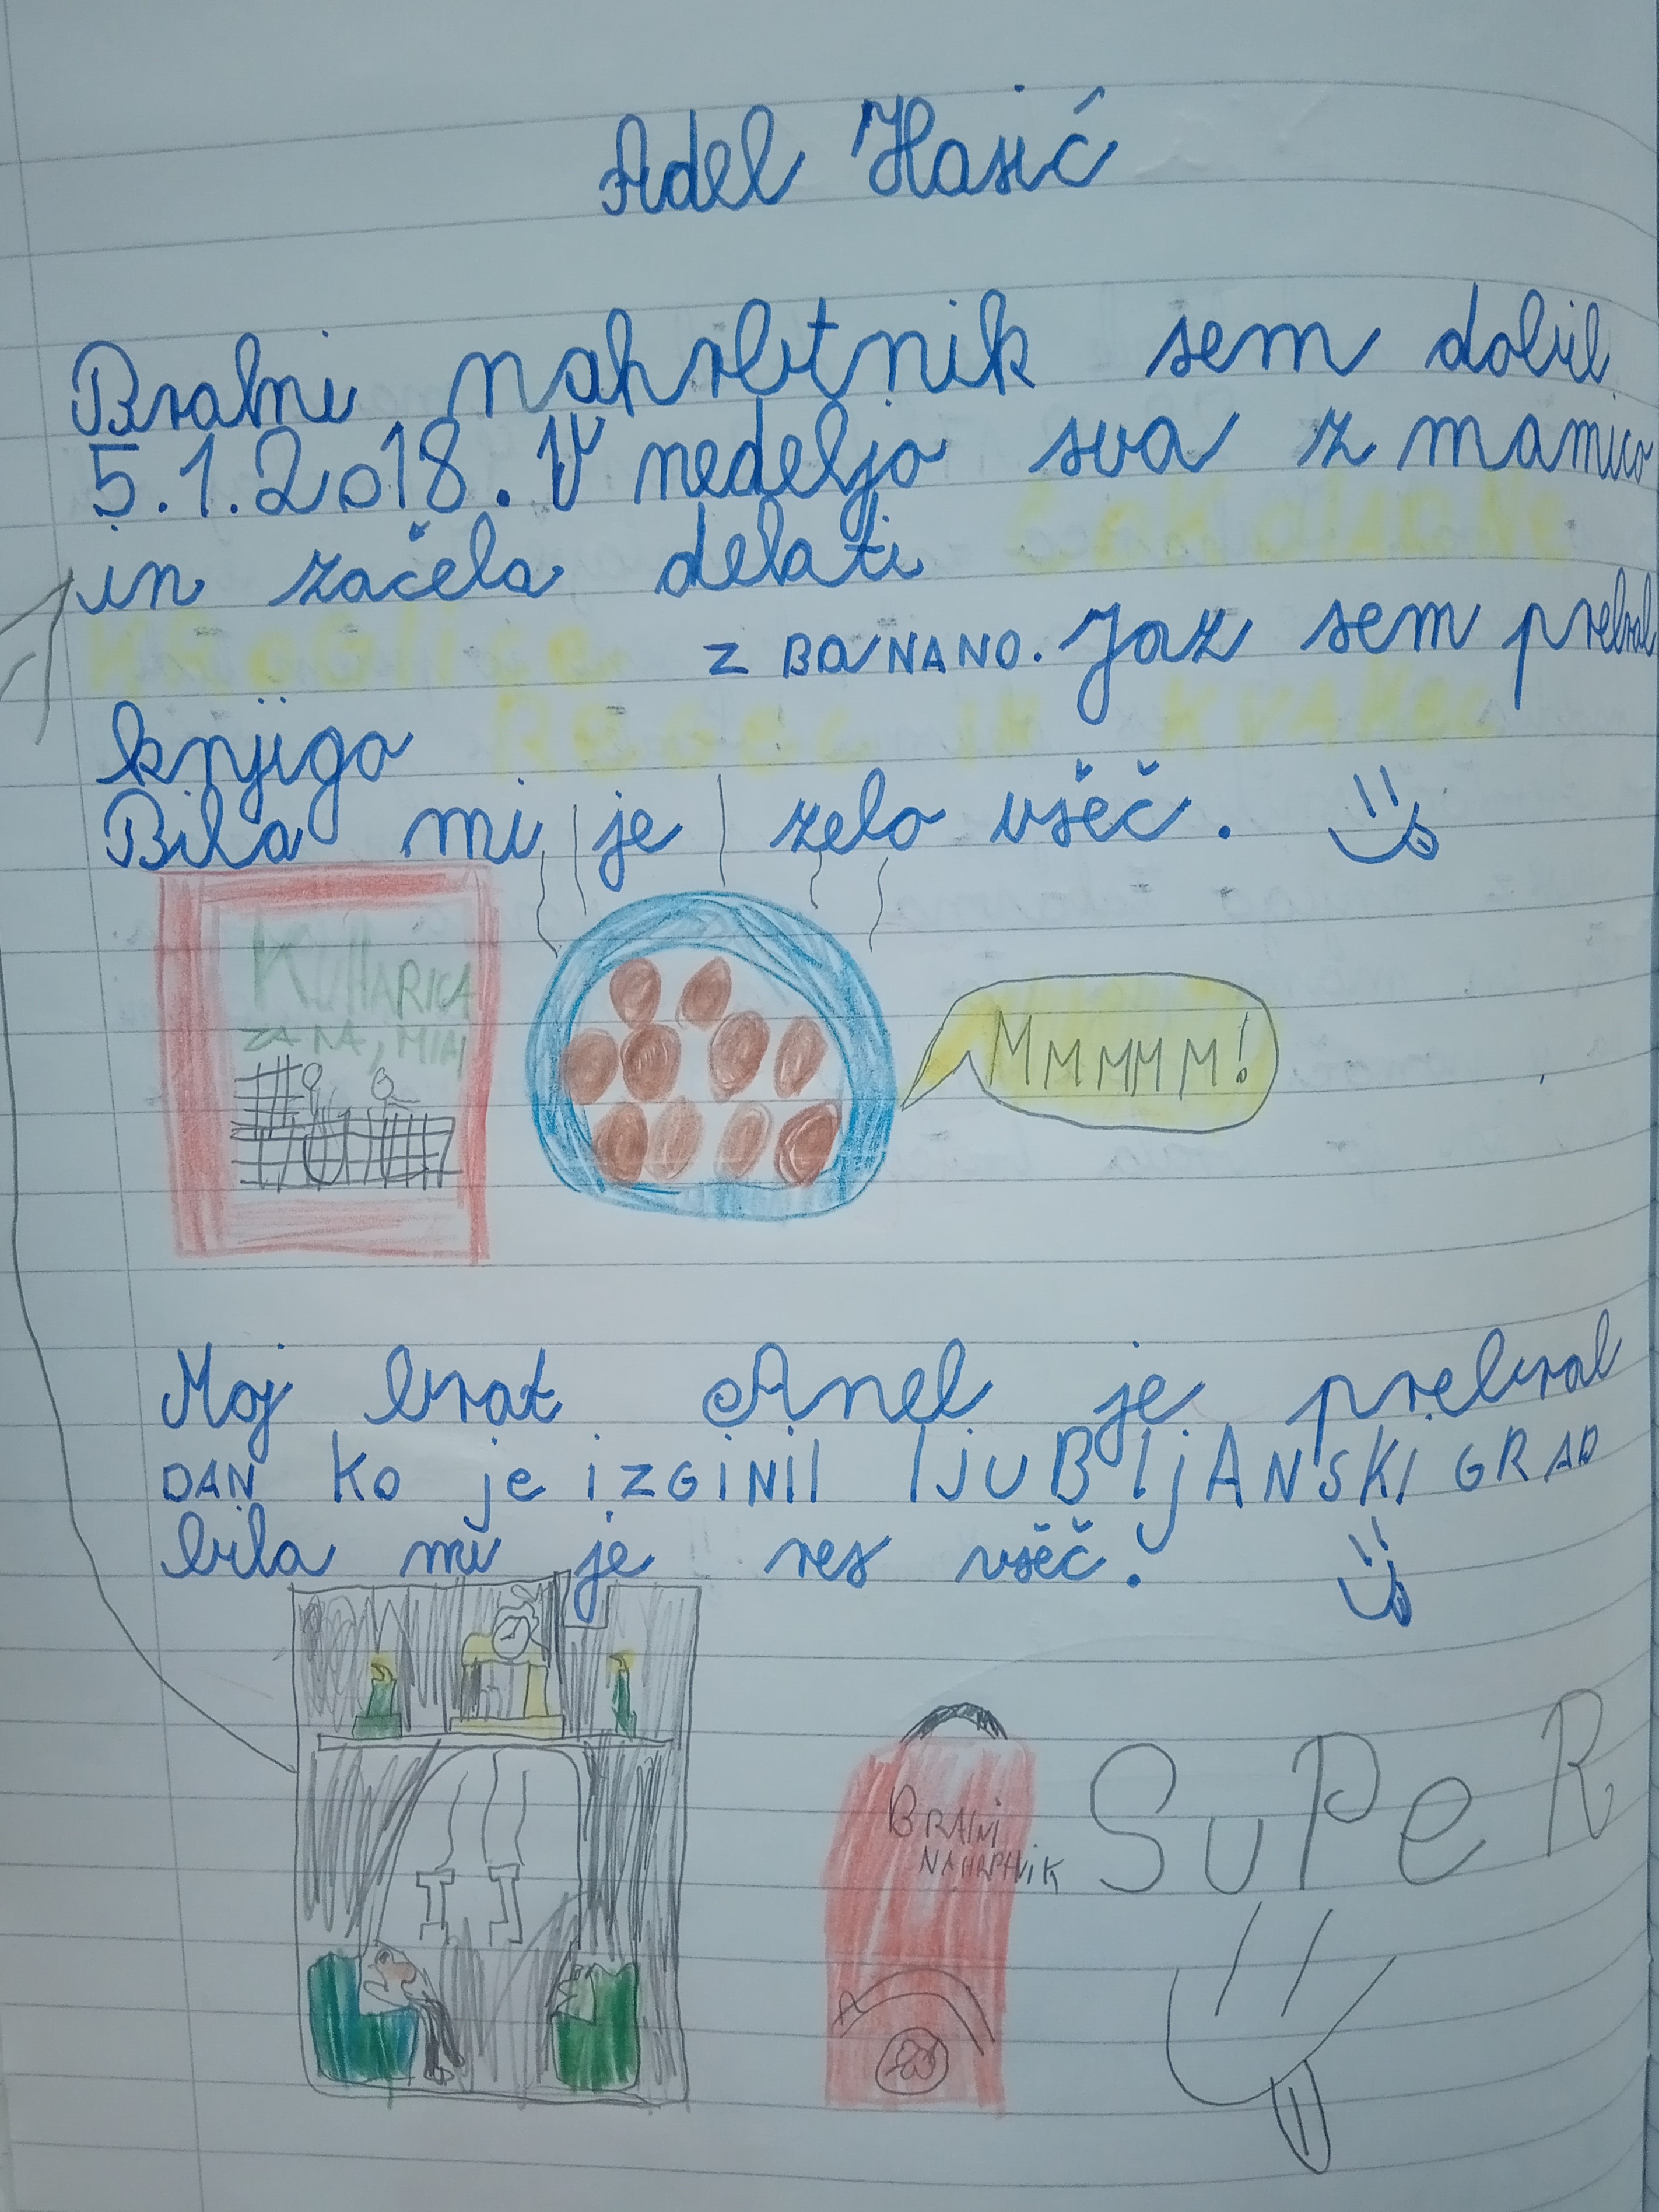 Adel Hasić
Bralni nahrbtnik sem dobil
5.1.2018. V nedeljo sva z mamico
in začela delati ČOKOLADNE
KROGLICE Z BANANO. Jaz sem prebral
knjigo REGGA IN KVAKEC
Bila mi je zelo všeč.
KUHARICA
ZA NA, MIAM
MMMMM!
Moj brat Anel je prebral
DAN KO je iZGINIl ljUBljANSKI GRAD
bila mi je res všeč.
BRALNI
NAHRBTNIK
SuPeR